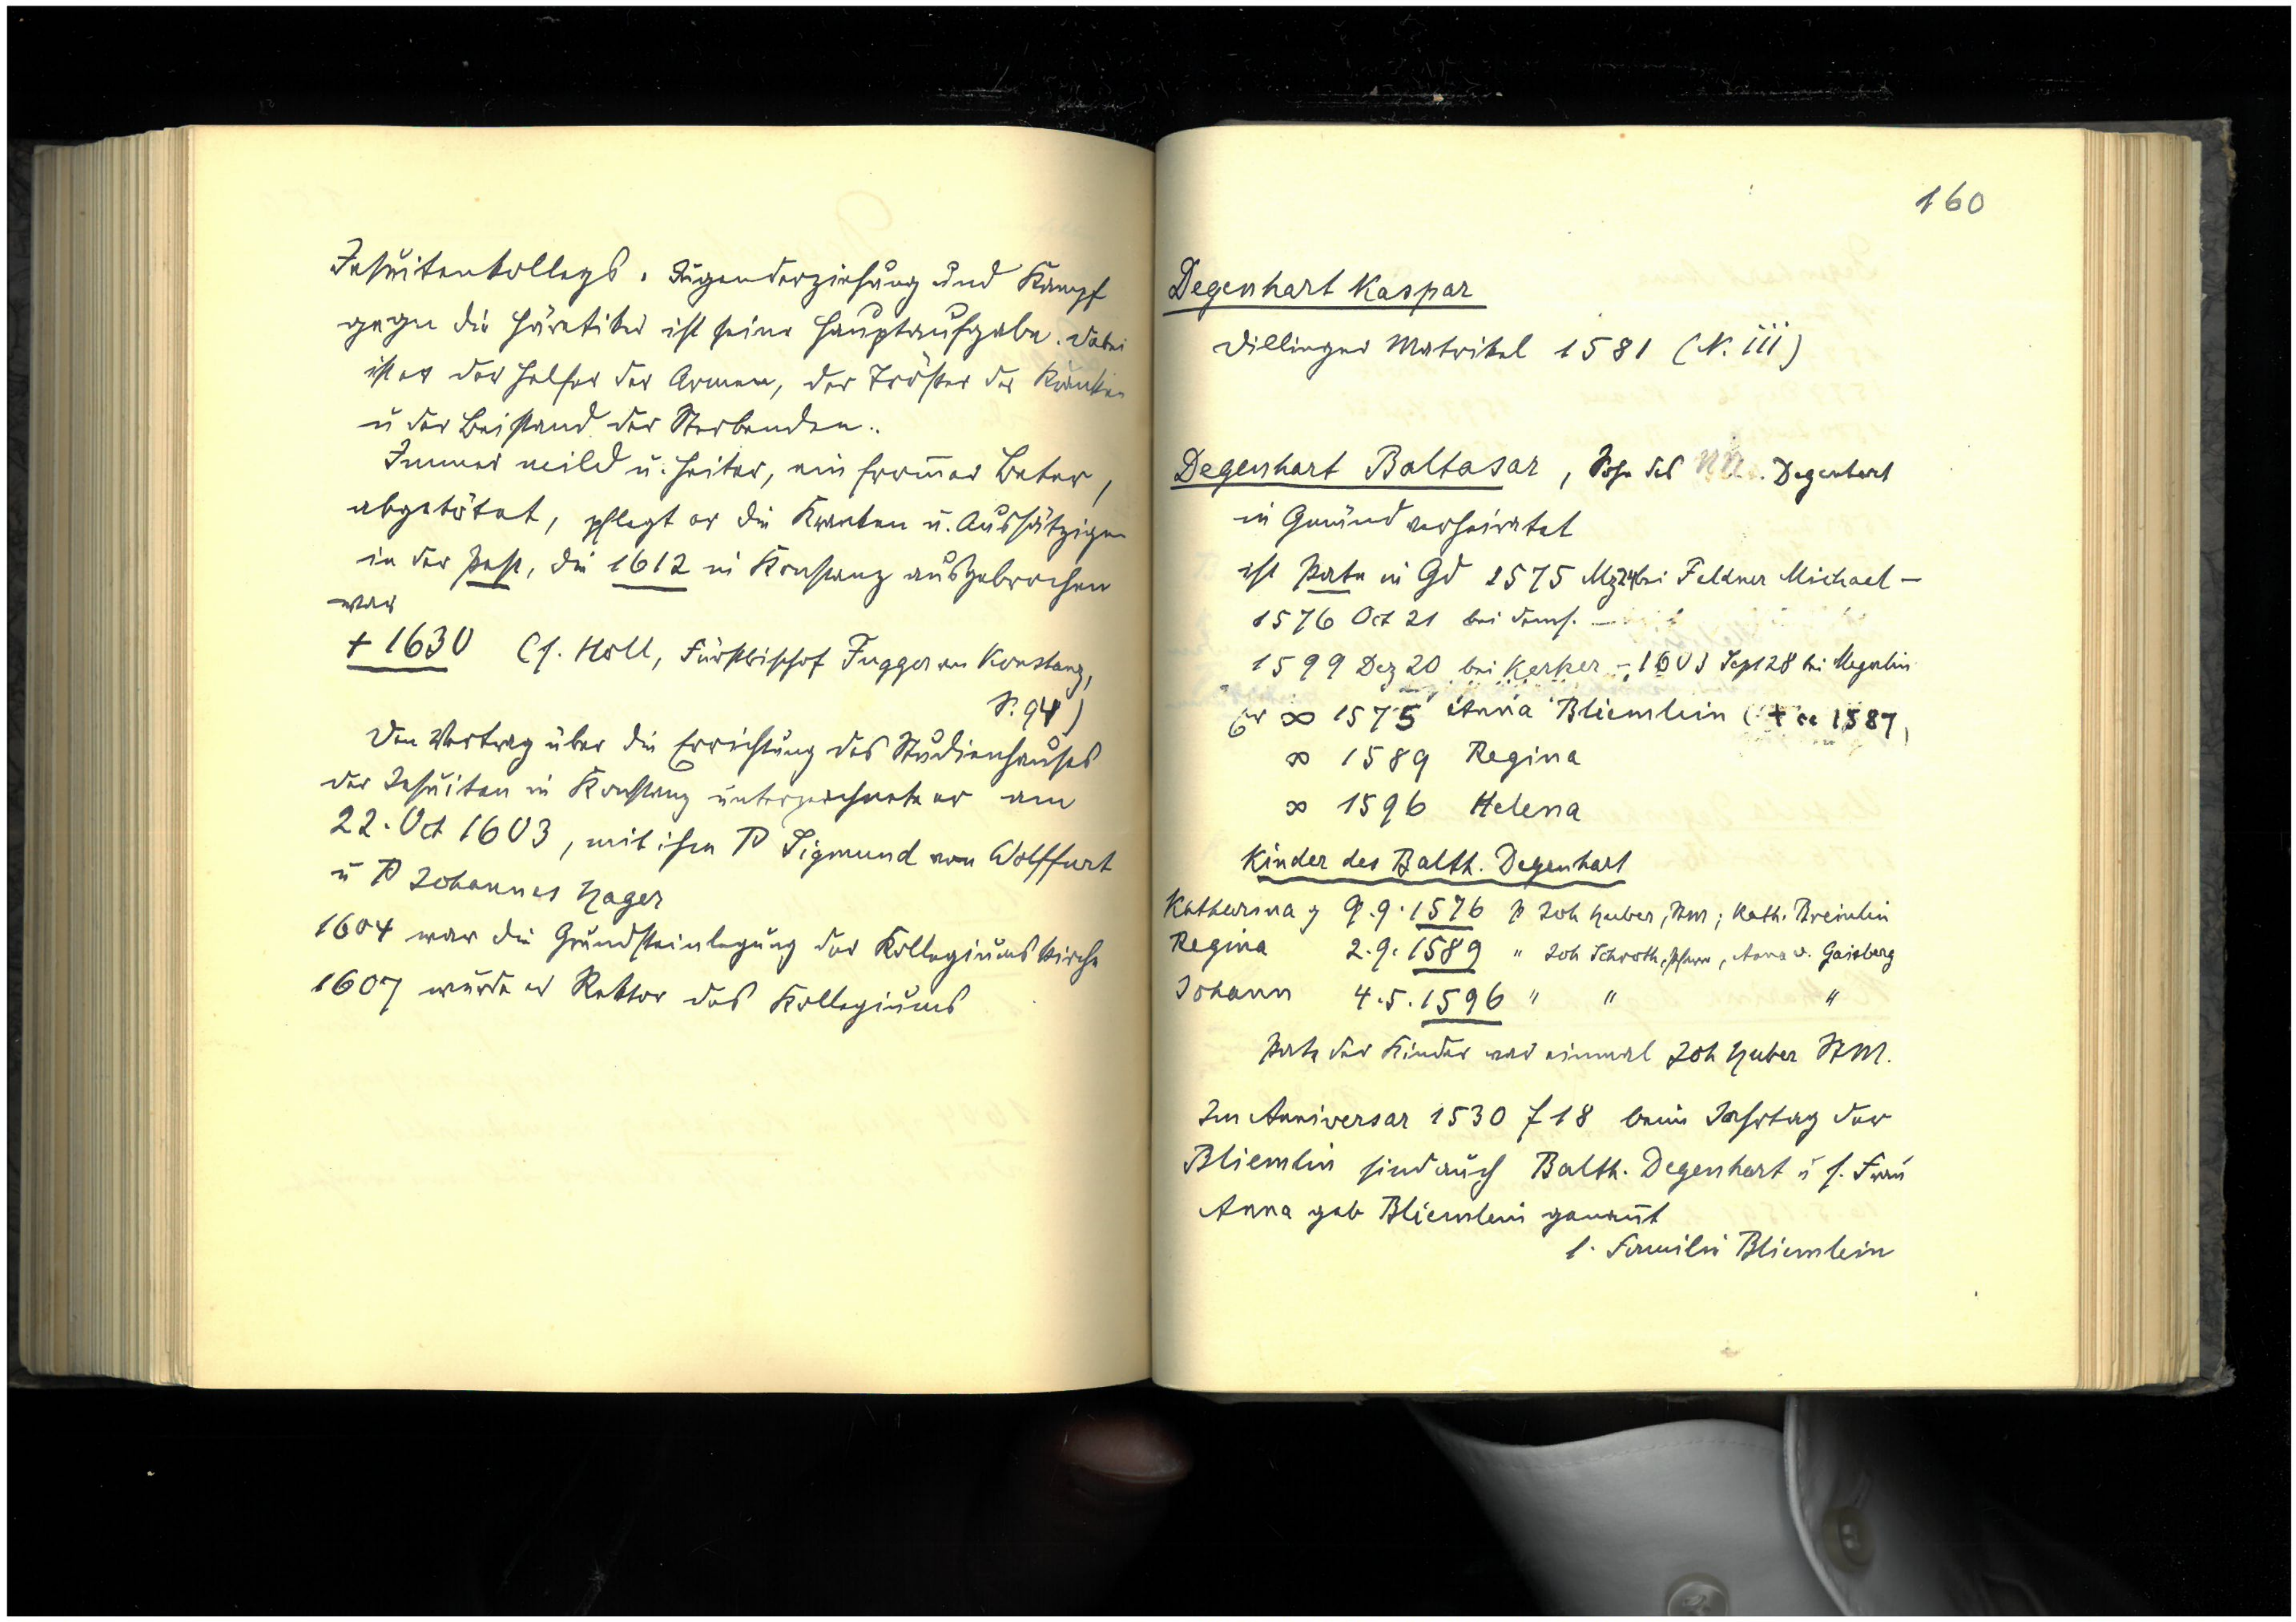 Jesuitenkollegs. Jugenderziehung und Kampf
gegen die Häretiker ist seine Hauptaufgabe. Dabei
ist er der Helfer der Armen, der Tröster der Kranken
u der Beistand der Sterbenden.
Immer mild u. heiter, ein from̄er Beter,
abgetötet, pflegt er die Kranken u. Aussätzigen
in der Pest, die 1612 in Konstanz ausgebrochen
war
+ 1630 (f. Holl, Fürstbischof Fugger von Konstanz,
S. 94)
Den Vertrag über die Errichtung des Studienhauses
der Jesuiten in Konstanz unterzeichnete er am
22. Oct 1603, mit ihm P Sigmund von Wolffurt
u P Johannes Hager
1604 war die Grundsteinlegung der Kollegiumskirche
1607 wurde er Rektor des Kollegiums
160
Degenhart Kaspar
Dillinger Matrikel 1581 (N. iii)
Degenhart Baltasar, Sohn des NN. Degenhart
in Gmünd verheiratet
ist Pate in Gd 1575 Mz 24 bei Feldner Michael –
1576 Oct 21 bei dems. –
1599 Dez 20 bei Kerker – 1603 Sept 28 bei Megerlin
Er ∞ 1575 Anna Bliemlein (+ ca 1587)
∞ 1589 Regina
∞ 1596 Helena
Kinder des Balth. Degenhart
Katharina g 9.9.1576 P Joh Huber, StM; Kath. Breinlin
Regina 2.9.1589 " Joh Schroth, Pfarrer, Anna v. Gaisberg
Johann 4.5.1596 " " "
Pate der Kinder war einmal Joh Huber StM.
Im Anniversar 1530 f 18 beim Jahrtag der
Bliemlin sind auch Balth. Degenhart u s. Frau
Anna geb Bliemlein genan̄t
s. Familie Bliemlein